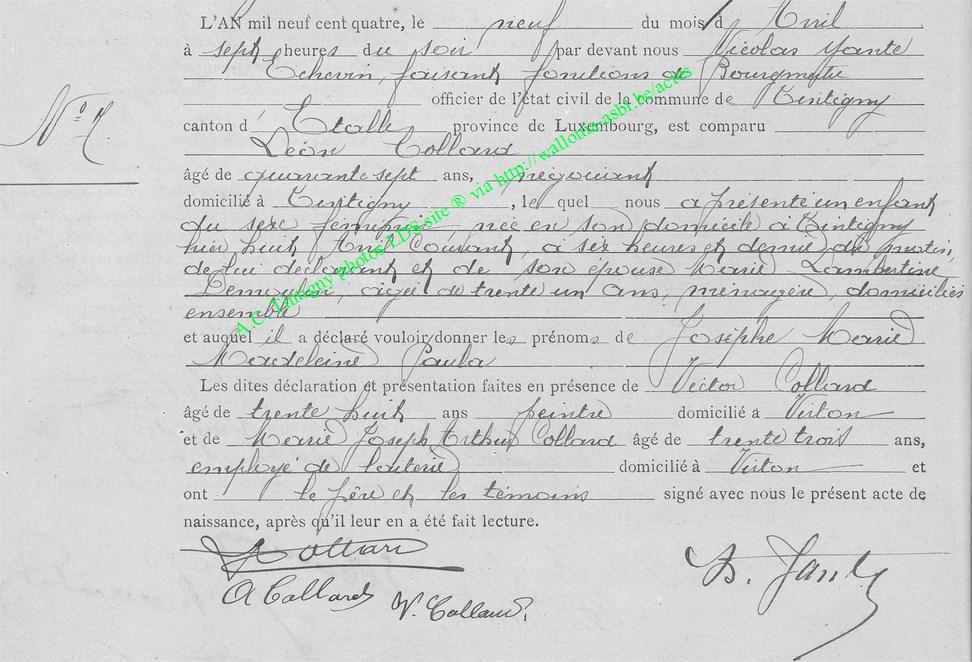 L'AN mil neuf cent quatre, le neuf du mois d'Avril
à sept heures du soir par devant nous Nicolas Yante
Echevin, faisant fonctions de Bourgmestre
officier de l'état civil de la commune de Tintigny
N° 7.
canton d'Etalle province de Luxembourg, est comparu
Léon Collard
âgé de quarante sept ans, négociant
domicilié à Tintigny, le quel nous a présenté un enfant
du sexe féminin, née en son domicile à Tintigny
hier huit Avril courant, à six heures et demie du matin,
de lui déclarant et de son épouse Marie Lambertine
Demoulin, âgée de trente un ans, ménagère, domiciliés
ensemble
et auquel il a déclaré vouloir donner les prénoms de Josèphe Marie
Madeleine Paula
Les dites déclaration et présentation faites en présence de Victor Collard
âgé de trente huit ans peintre domicilié à Virton
et de Marie Joseph Arthur Collard âgé de trente trois ans,
employé de domicilié à Virton et
ont le père et les témoins signé avec nous le présent acte de
naissance, après qu'il leur en a été fait lecture.
Collard
A Collard
V. Collard
N. Yante
A.C. Tintigny photos LDS site ® via http://wallonia-asbl.be/actes